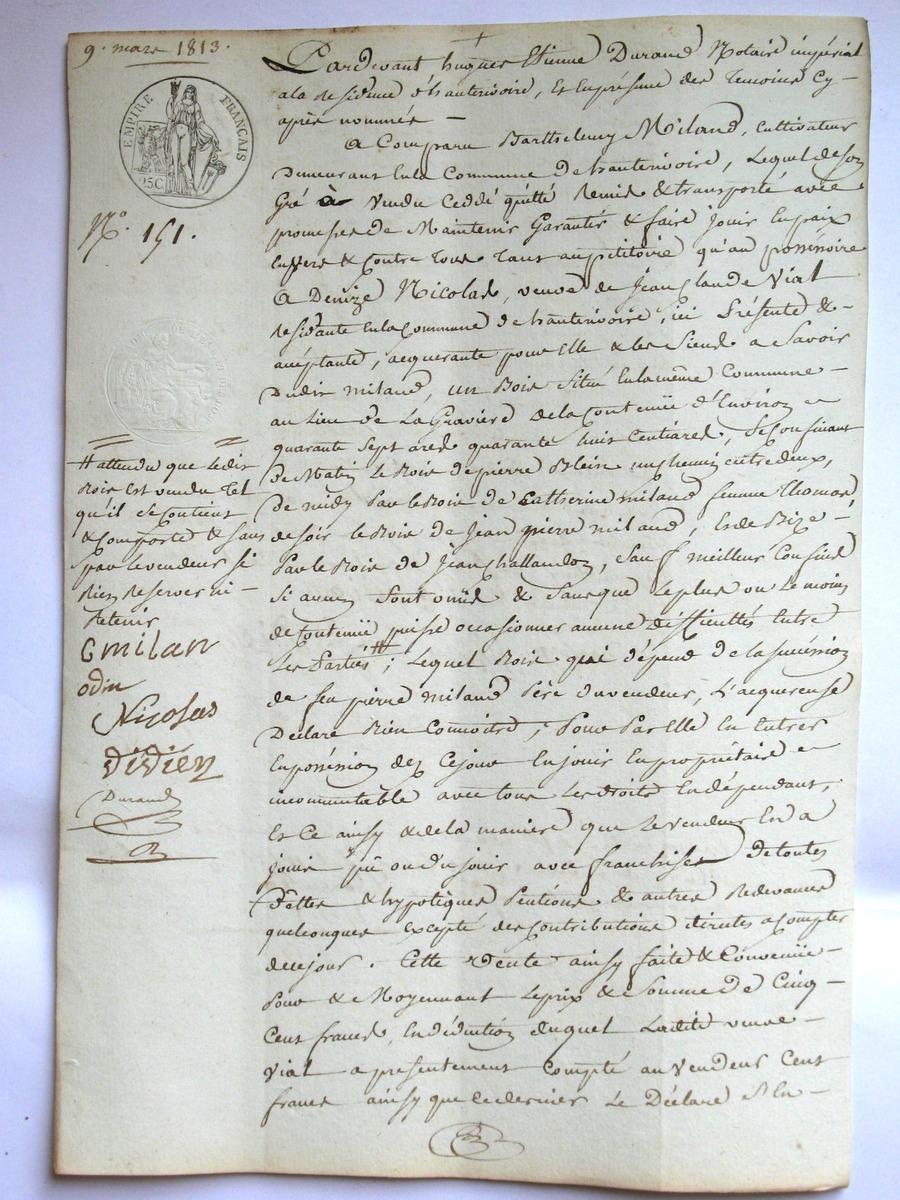 9. mars 1813.
EMPIRE FRANÇAIS
25C
N.º 151.
Pardevant hugues Etienne Durand Notaire impérial
ala Residence d'hauterivoire, et enpresence des temoins Cy-
après nommés —
a Comparu Barthelemy Miland, Cultivateur
Demeurant enla Commune de hauterivoire, Lequel de son
Gré à vendu Ceddé quitté Remis & transporté avec
promesses de Maintenir Garantir & faire jouir en paix
envers & Contre tous tant aupetitoire qu'au possessoire
A Denize Nicolas, veuve de Jean Claude Vial
Residante enla Commune de hauterivoire, ici Présente &
acceptante, acquerante pour Elle & les Siens a Savoir
Dudit miland, un Bois Situé enla même Commune
au lieu de La Gravière dela Contenüe d'Environ
quarante Sept ares quarante huit Centiares, Se Confinant
de Matin le Bois de pierre Blein un chemin entre deux,
de midy Par le Bois de Catherine miland femme thomas
de soir le Bois de Jean pierre miland, & de Bize
Par le Bois de Jean challandon, Sauf meilleur Confins
Si aucuns Sont omis & Sans que le plus ou le moins
de Contenüe puisse occasionner aucune difficultés Entre
Les Parties #; Lequel Bois qui dépend de la succession
de feu pierre miland Père du vendeur, L'acquereuse
Declare Bien Connoitre; Pour Par Elle En Entrer
En possession dez Ce jour En jouir En propriétaire
incommutable avec tous Les droits En dépendant,
Et Ce ainsy & dela manière que Le vendeur En a
joui pû ou du jouir avec franchises De toutes
Dettes & hypotèques Pentions & autres Redevances
quelconques Excepté des Contributions directes a Compter
de ce jour. Cette Vente ainsy faite & Convenüe
Pour & Moyennant Le prix & Somme de Cinq
Cent francs, En déduction duquel Ladite veuve
Vial a presentement Compté au Vendeur Cent
francs ainsy que ce dernier Le Déclare S'En
# attendu que ledit
Bois est vendu tel
qu'il se Contient
& Comporte & sans
par le vendeur s'i
Rien Reserver ni
Retenir
C milan
odin
Nicolas
Didier
Durand